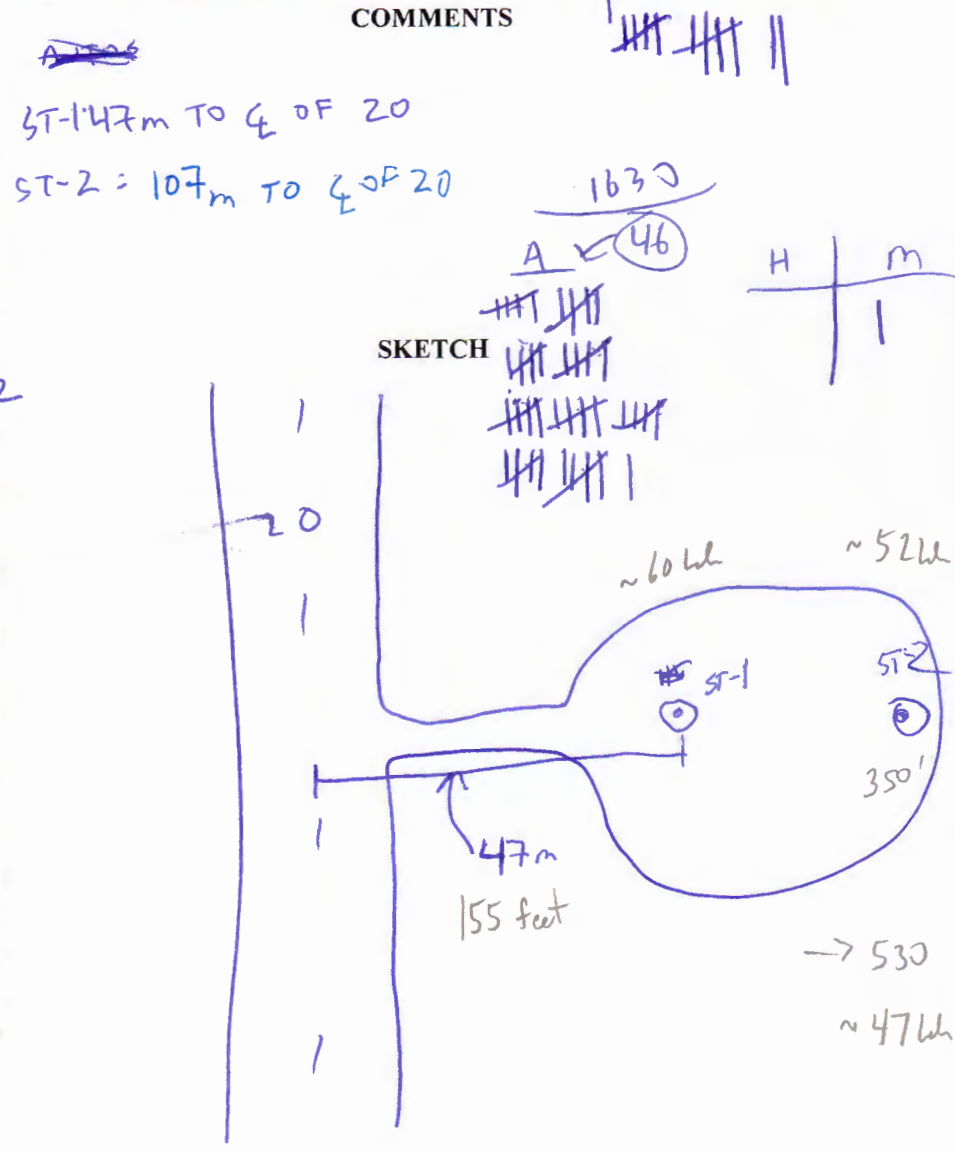 COMMENTS
ST-1: 47m TO ℄ OF 20
ST-2 = 107m TO ℄ OF 20
1630
A 46
H M
SKETCH
2
20
~60
~52
ST-1
ST-2
350'
47m
155 feet
→ 530
~47